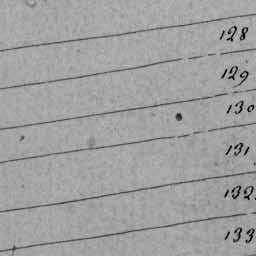 128
129
130
131
132.
133